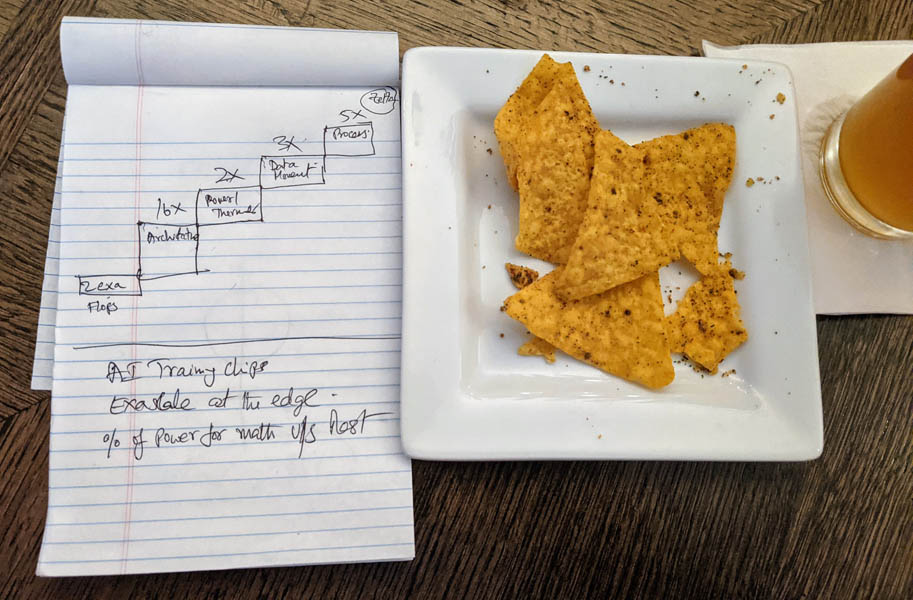 5x
Process
3x
Data
Movement
2x
Power/
Thermals
16x
Architecture
2 exa
Flops
AI Training chips
Exascale at the edge.
% of power for math v/s Rest